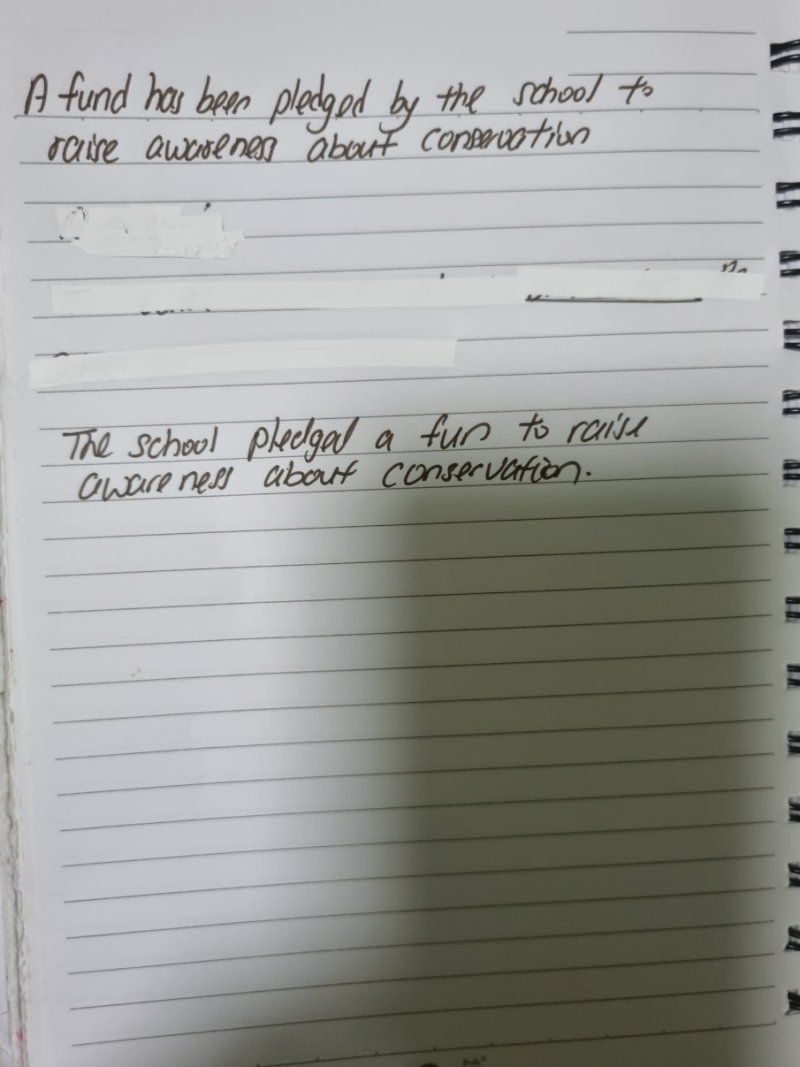 A fund has been pledged by the school to
raise awareness about conservation
The school pledged a fun to raise
awareness about conservation.